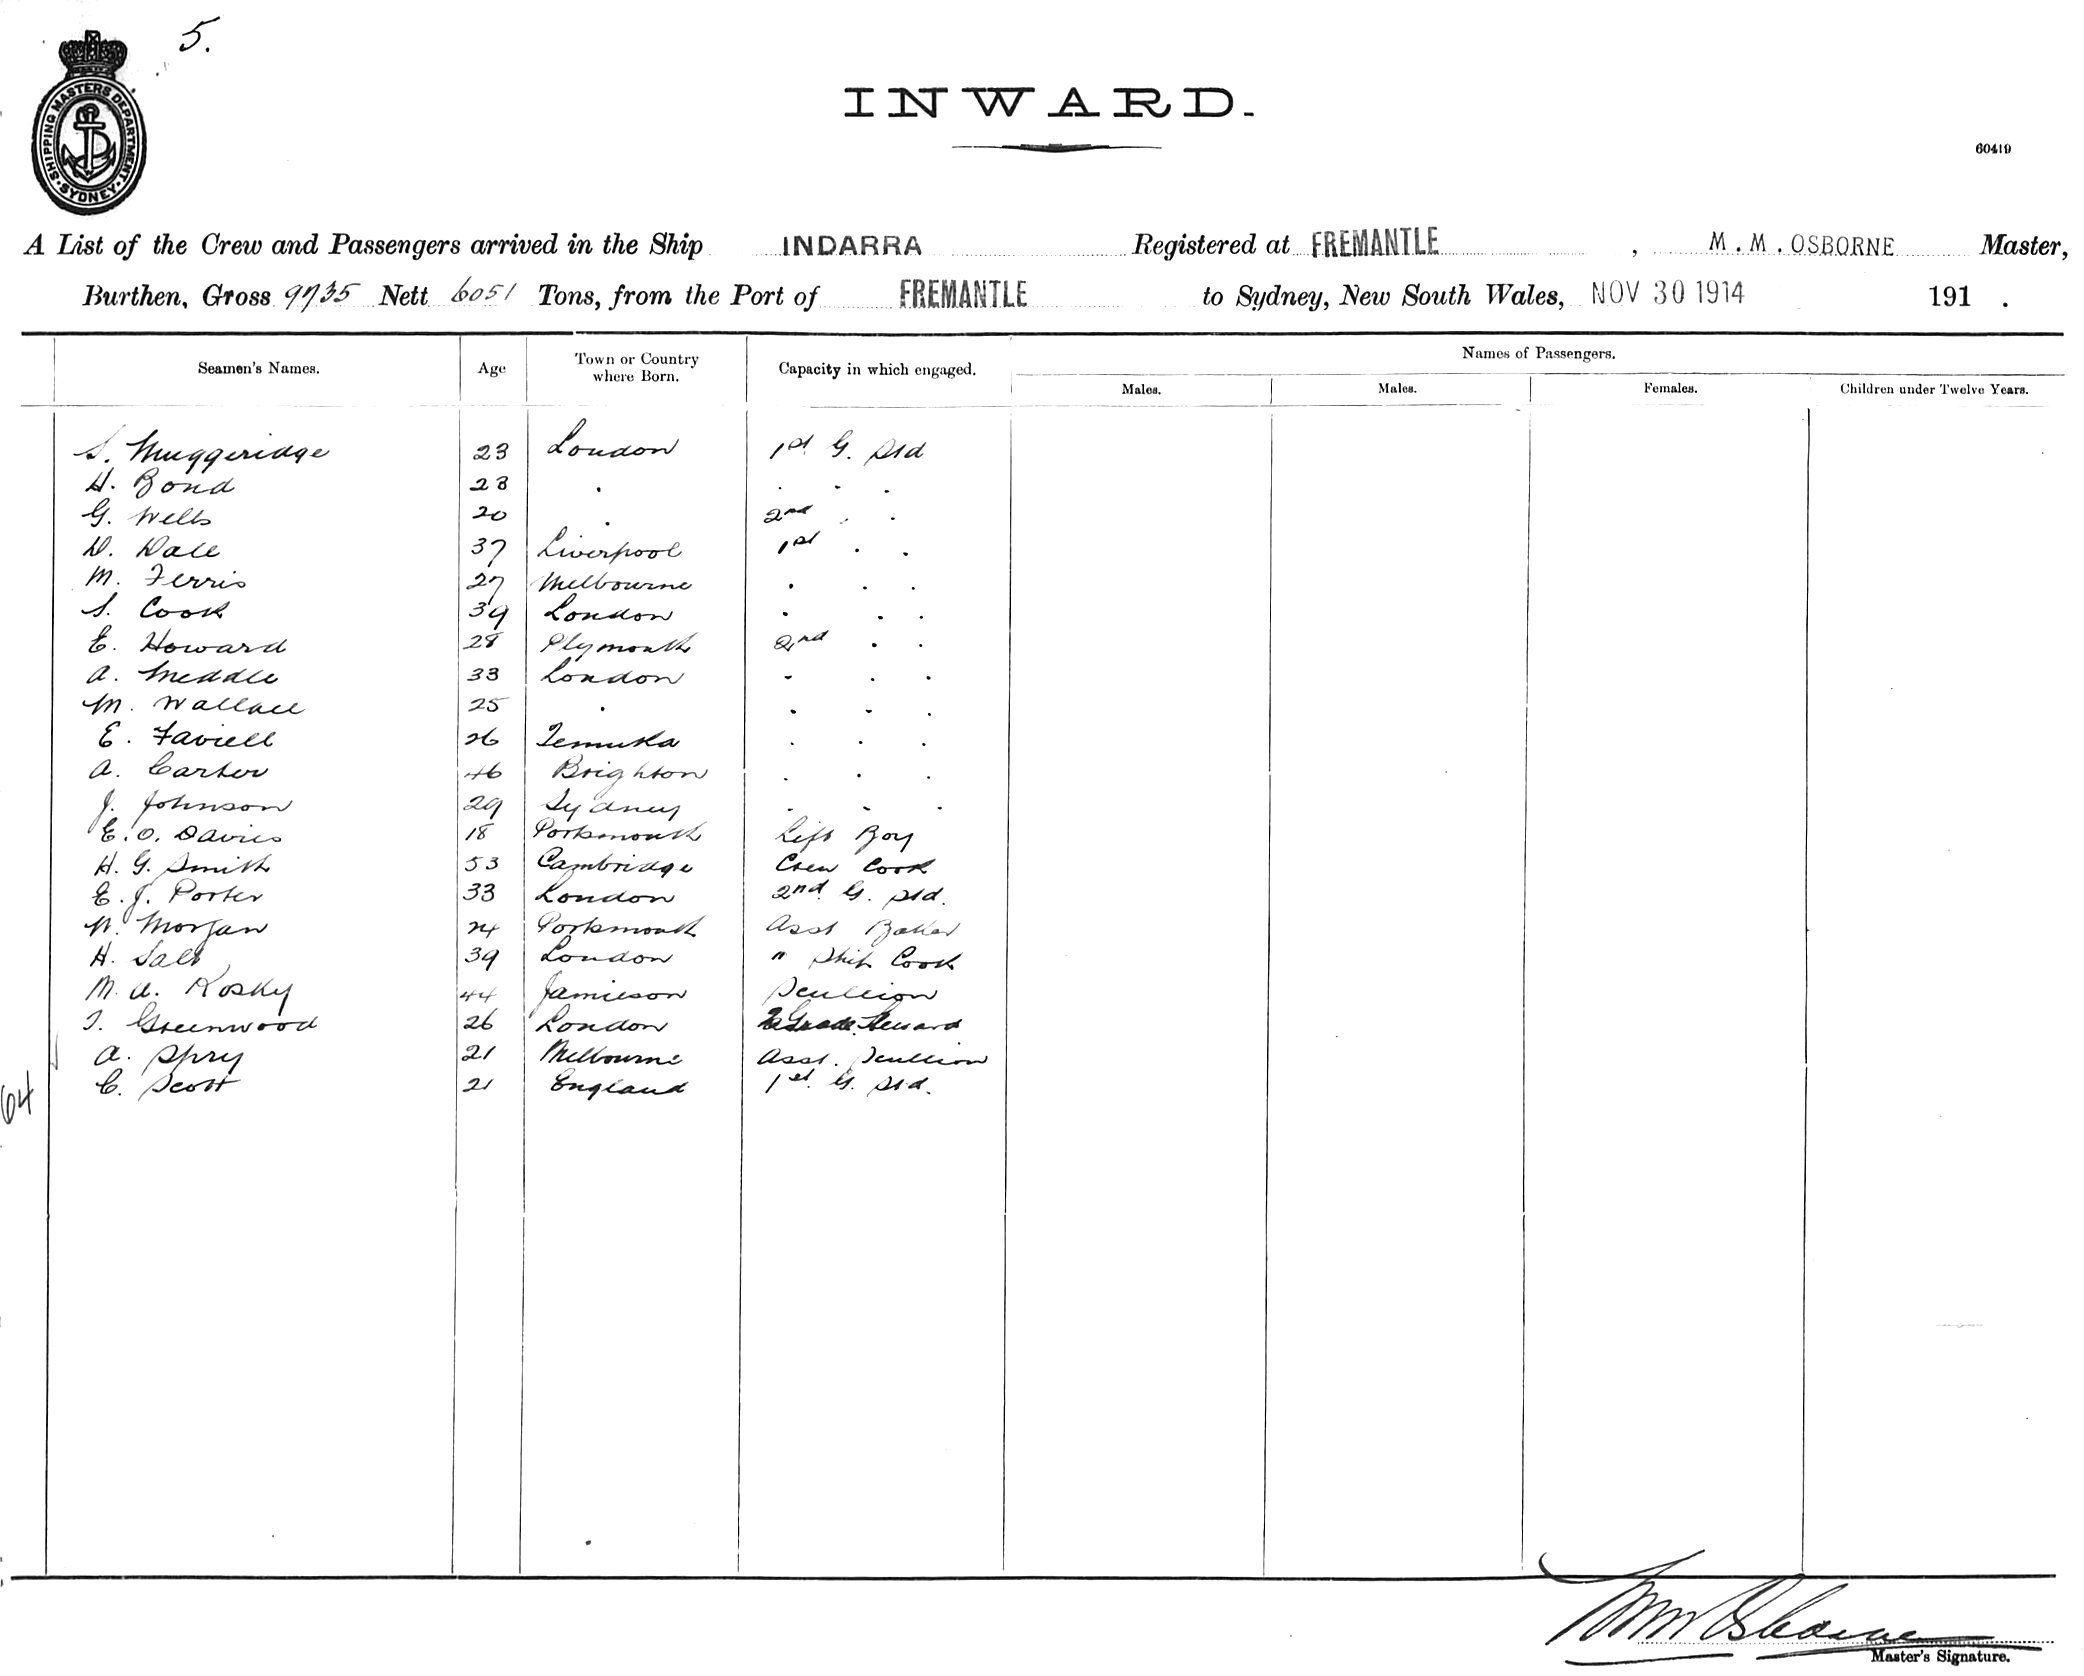 5.
SHIPPING MASTERS DEPARTMENT
SYDNEY
INWARD.
60419
A List of the Crew and Passengers arrived in the Ship INDARRA Registered at FREMANTLE, M.M.OSBORNE Master,
Burthen, Gross 9735 Nett 6051 Tons, from the Port of FREMANTLE to Sydney, New South Wales, NOV 30 1914 191 .
Seamen's Names. Age Town or Country where Born. Capacity in which engaged. Names of Passengers.
Males. Males. Females. Children under Twelve Years.
S. Muggeridge 23 London 1st G. Std
H. Bond 28 . . . .
G. Wells 20 . 2nd . .
D. Dale 37 Liverpool 1st . .
M. Ferris 27 Melbourne . . .
S. Cook 39 London . . .
E. Howard 28 Plymouth 2nd . .
A. Meddle 33 London - . .
M. Wallace 25 . . - .
E. Faviell 26 Temuka . . .
A. Carter 46 Brighton . . .
J. Johnson 29 Sydney . - .
E. O. Davies 18 Portsmouth Lift Boy
H. G. Smith 53 Cambridge Crew Cook
E. J. Porter 33 London 2nd. G. Std.
W. Morgan 24 Portsmouth Asst Baker
H. Salt 39 London " Ship Cook
M. A. Kosky 44 Jamieson Scullion
T. Greenwood 26 London 2 Grade Steward
A. Spry 21 Melbourne Asst. Scullion
C. Scott 21 England 1st. G. Std.
64
M M Osborne
Master's Signature.